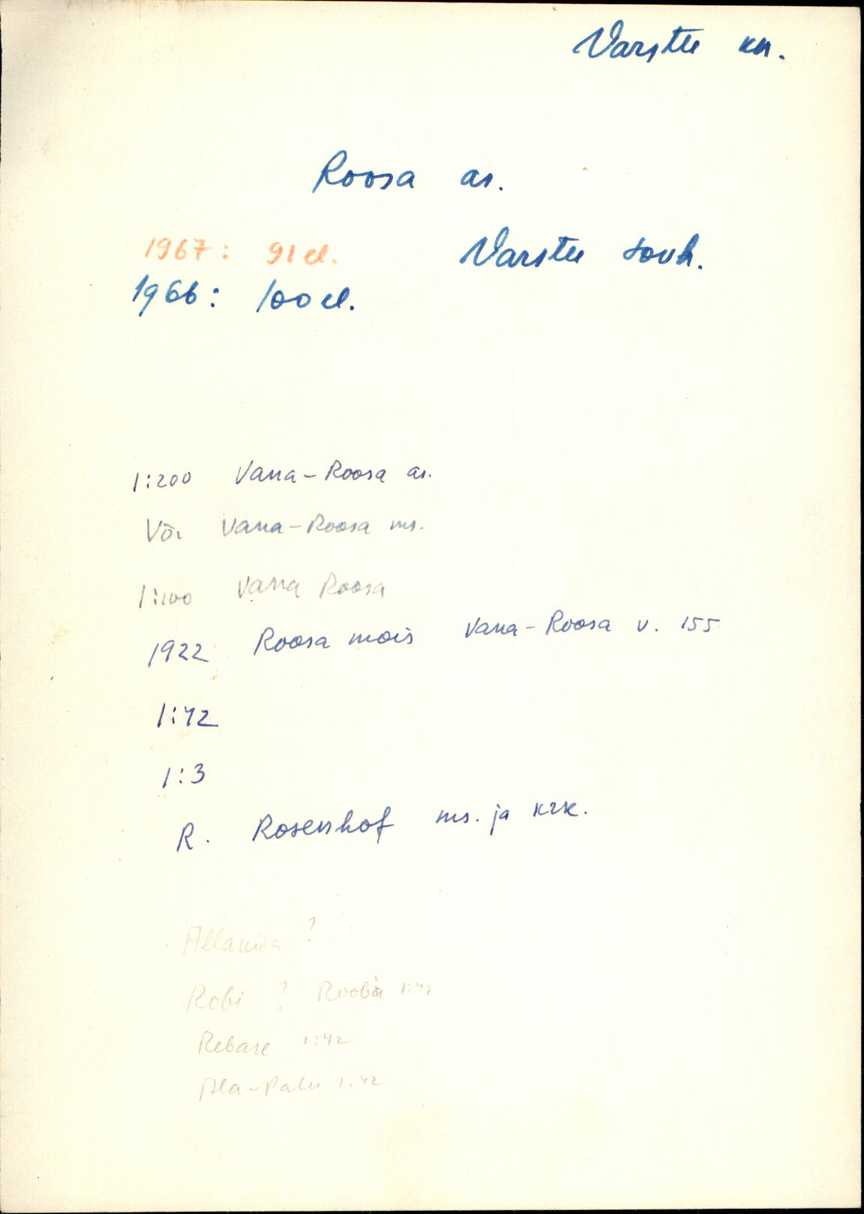 Varstu kn.
Roosa as.
1967: 91 el. Varstu sovh.
1966: 100 el.
1:200 Vana-Roosa as.
Või Vana-Roosa ms.
1:100 Vana Roosa
1922 Roosa mois Vana-Roosa v. 155
1:42
1:3
R. Rosenhof ms. ja krk.
?
Robi ? Rooba 1:42
Rebase 1:42
Ala-Palu 1:42